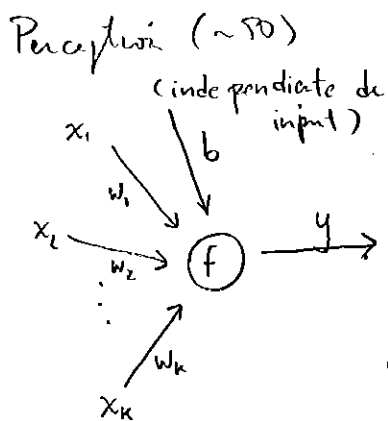 Perceptrón (~50)
(independiente de
input)
x₁
b
w₁
x₂
w₂
f
y
⋮
w_K
x_K